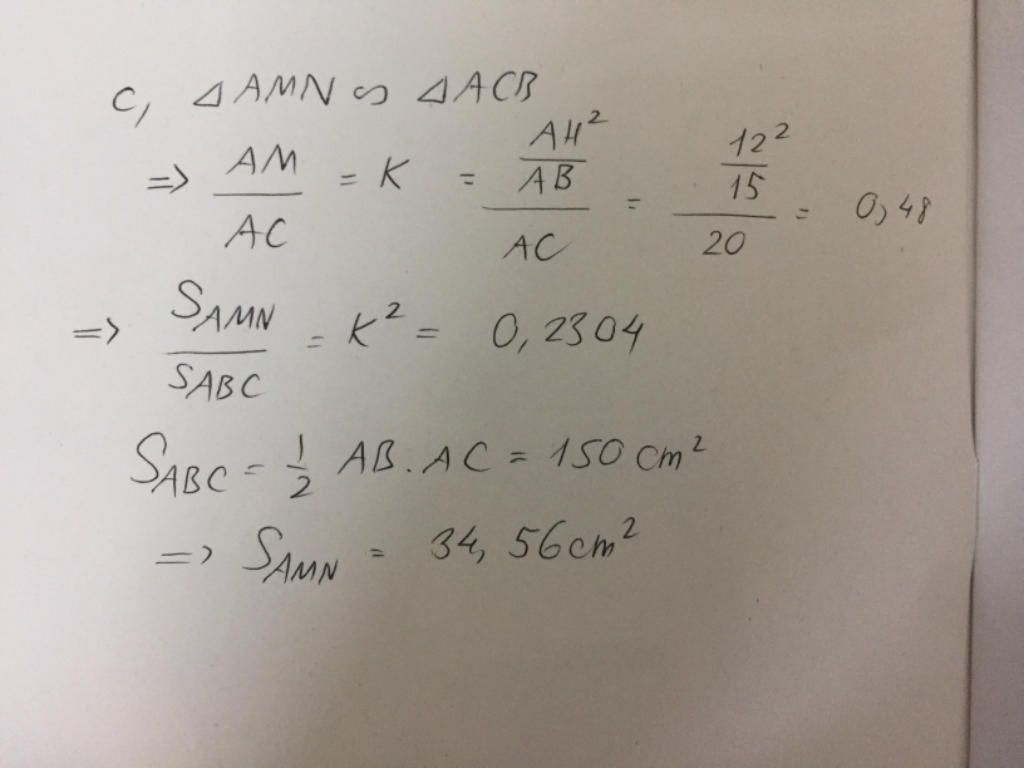 c, △AMN ∽ △ACB
=> AM/AC = K = (AH²/AB)/AC = (12²/15)/20 = 0,48
=> S_AMN/S_ABC = K² = 0,2304
S_ABC = 1/2 AB.AC = 150 cm²
=> S_AMN = 34,56 cm²